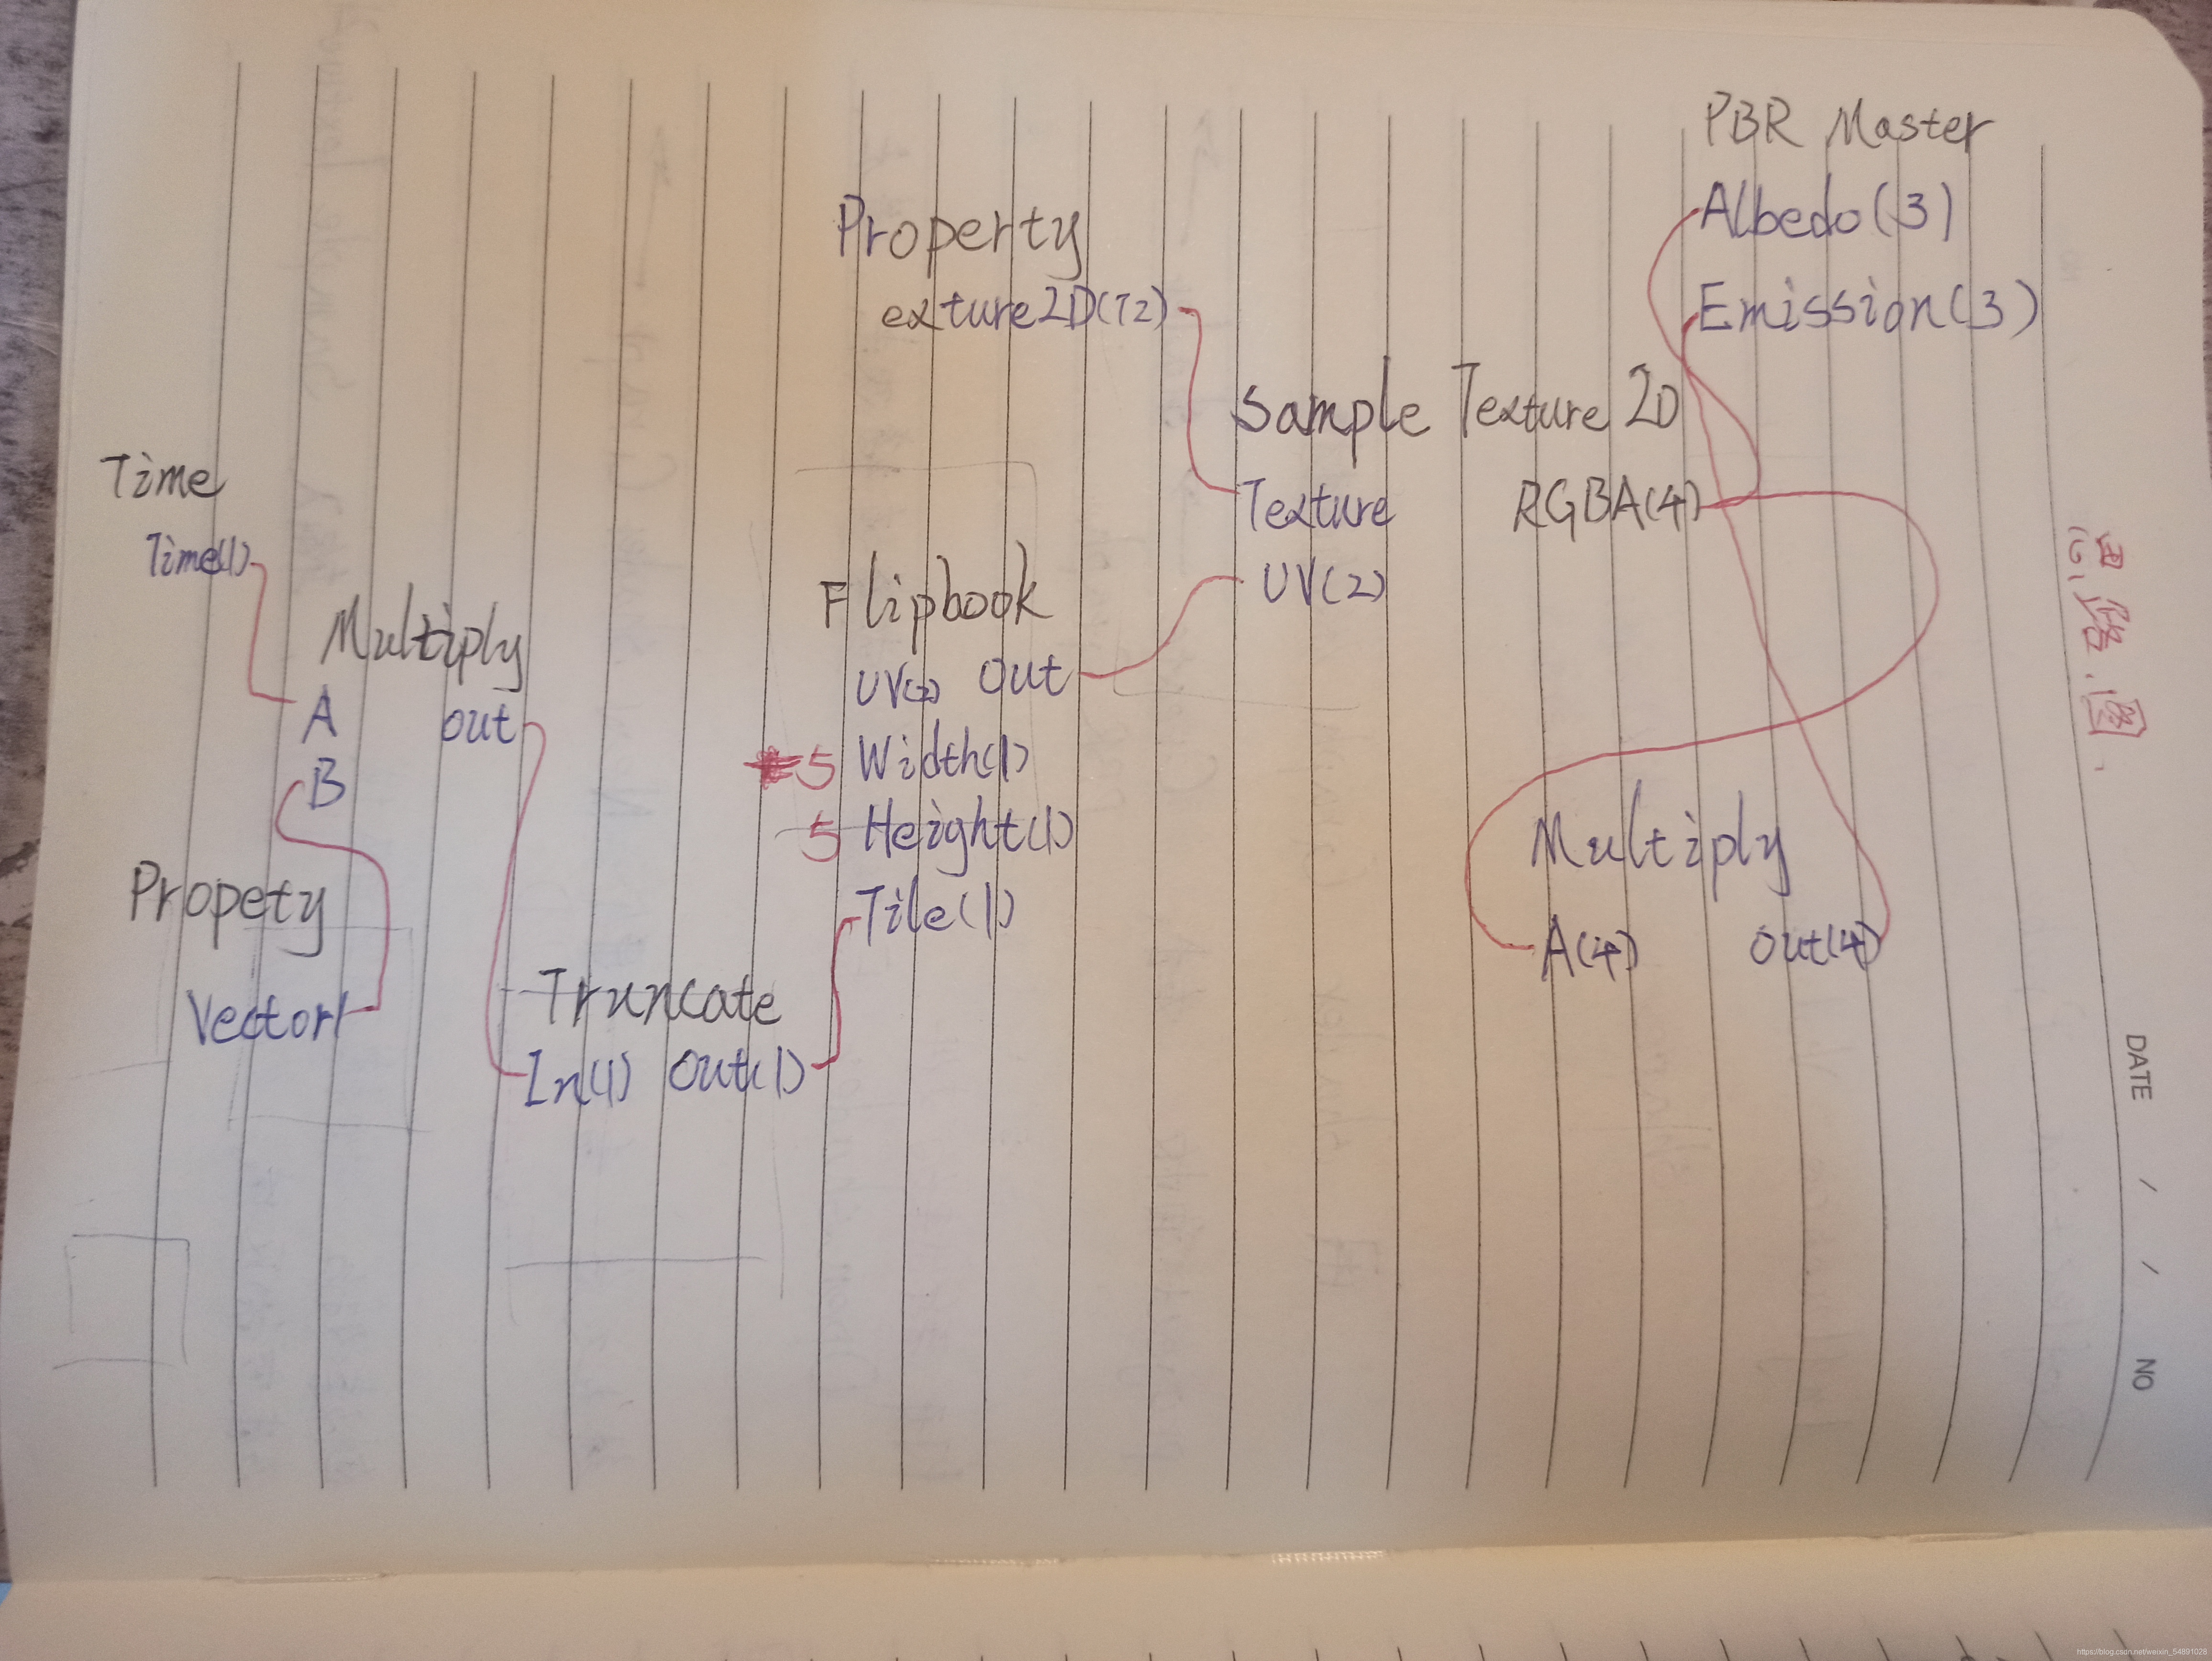 PBR Master
Albedo(3)
Emission(3)
Property
exture2D(T2)
Sample Texture 2D
Texture RGBA(4)
UV(2)
Time
Time(1)
Multiply
A out
B
Propety
Vector1
Truncate
In(1) Out(1)
Flipbook
UV(2) Out
5 Width(1)
5 Height(1)
Tile(1)
Multiply
A(4) Out(4)
思路图.
DATE / /
NO
https://blog.csdn.net/weixin_54891028